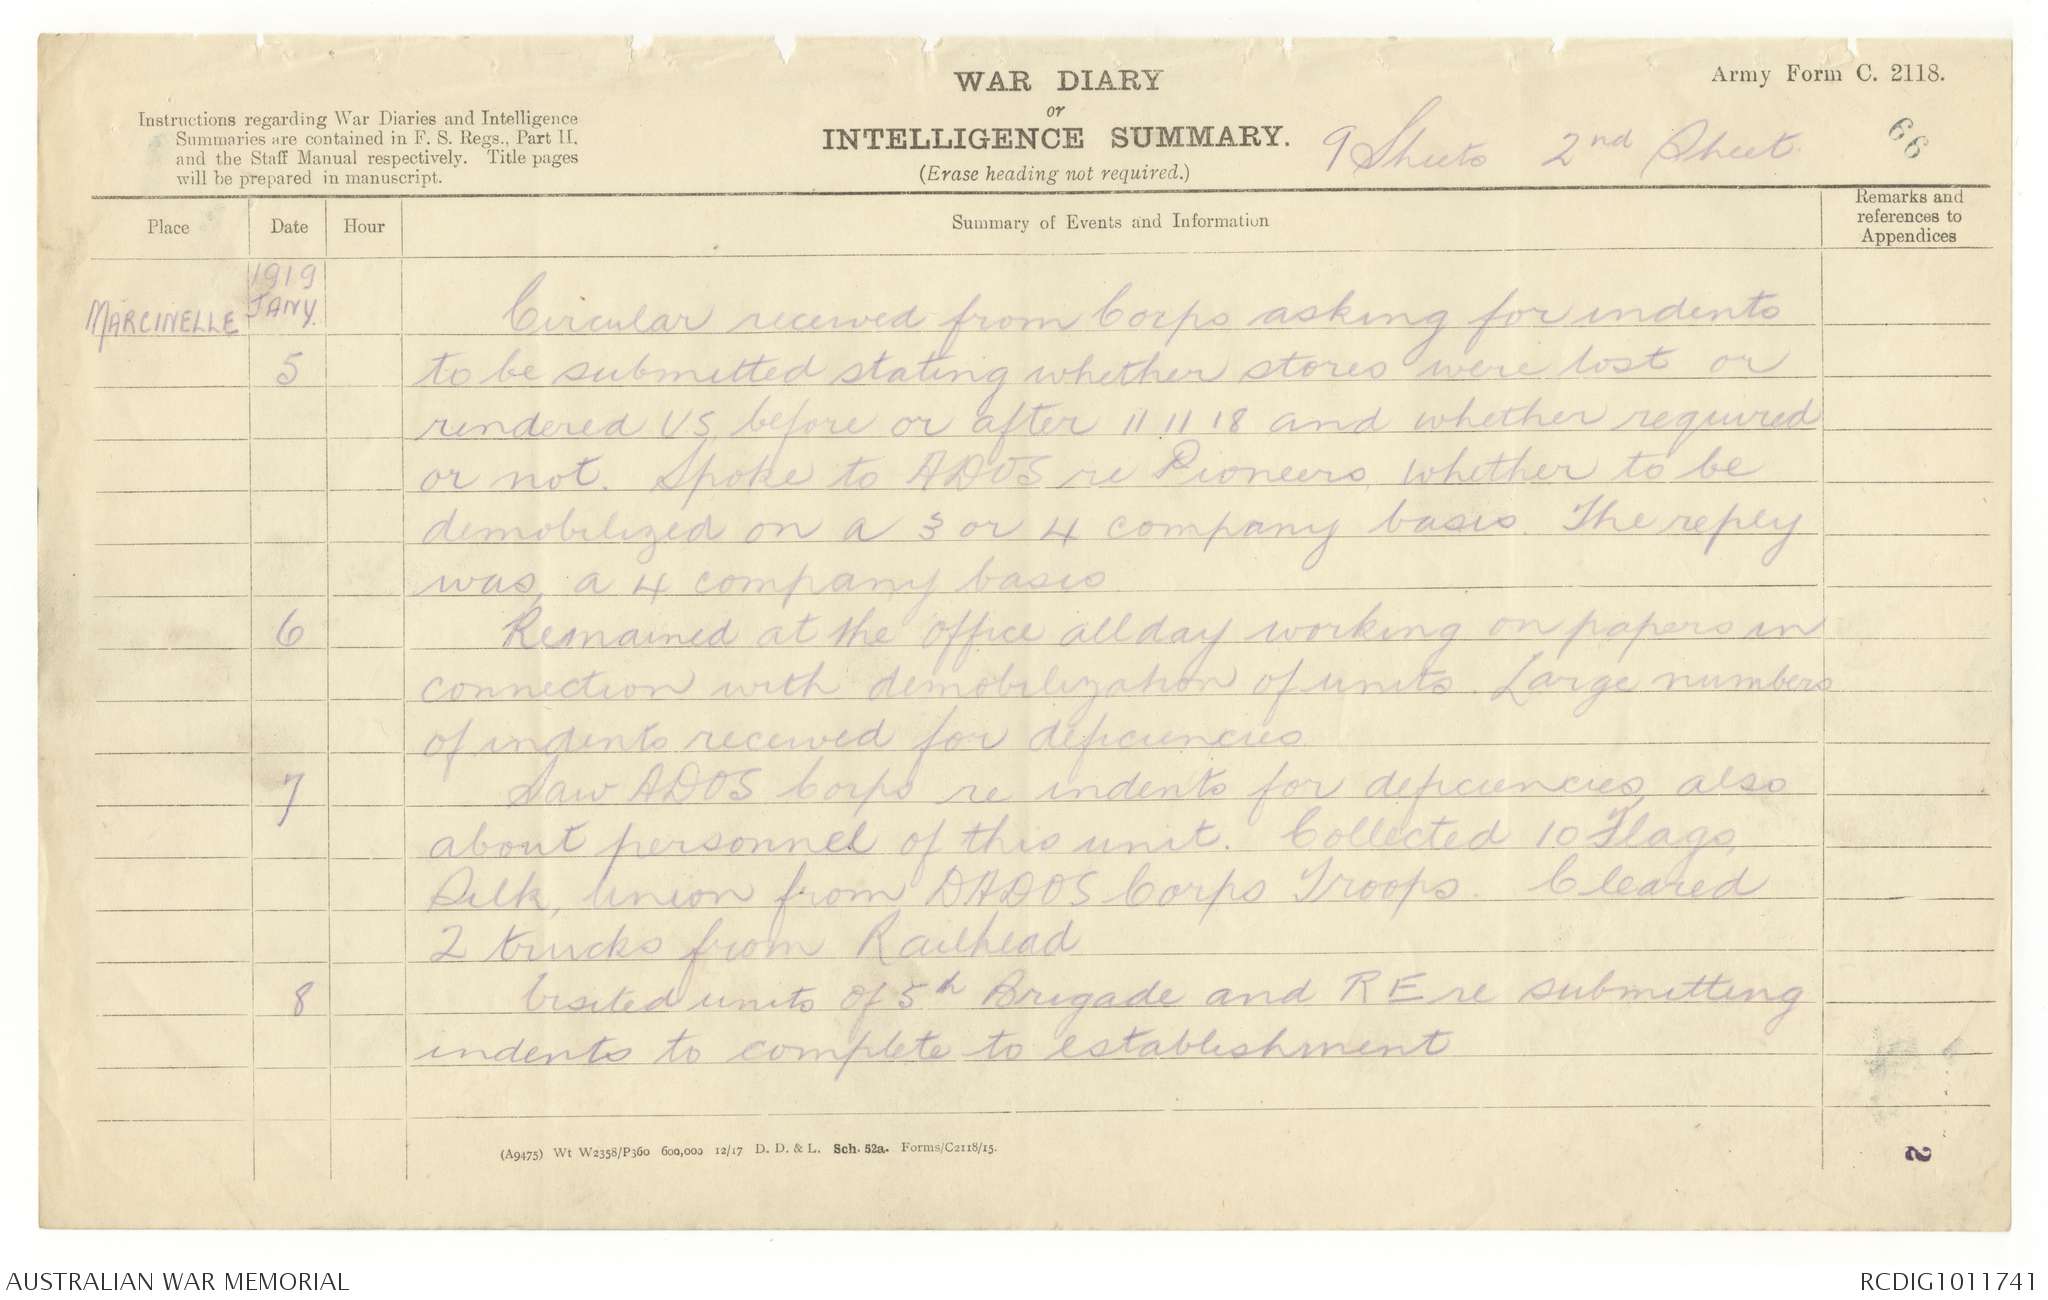 Army Form C. 2118.
WAR DIARY
or
INTELLIGENCE SUMMARY.
(Erase heading not required.)
9 Sheets 2nd Sheet.
66
Instructions regarding War Diaries and Intelligence
Summaries are contained in F. S. Regs., Part II,
and the Staff Manual respectively. Title pages
will be prepared in manuscript.
Place Date Hour Summary of Events and Information Remarks and references to Appendices
1919
MARCINELLE JANY. Circular received from Corps asking for indents
5 to be submitted stating whether stores were lost or
rendered US before or after 11 11 18 and whether required
or not. Spoke to ADOS re Pioneers, whether to be
demobilized on a 3 or 4 company basis. The reply
was, a 4 company basis
6 Remained at the office all day working on papers in
connection with demobilization of units. Large numbers
of indents received for deficiencies.
7 Saw ADOS Corps re indents for deficiencies, also
about personnel of this unit. Collected 10 Flags,
Silk, Union from DADOS Corps Troops. Cleared
2 trucks from Railhead
8 Visited units of 5th Brigade and RE re submitting
indents to complete to establishment
(A9475) Wt W2358/P360 600,000 12/17 D. D. & L. Sch. 52a. Forms/C2118/15.
2
AUSTRALIAN WAR MEMORIAL
RCDIG1011741